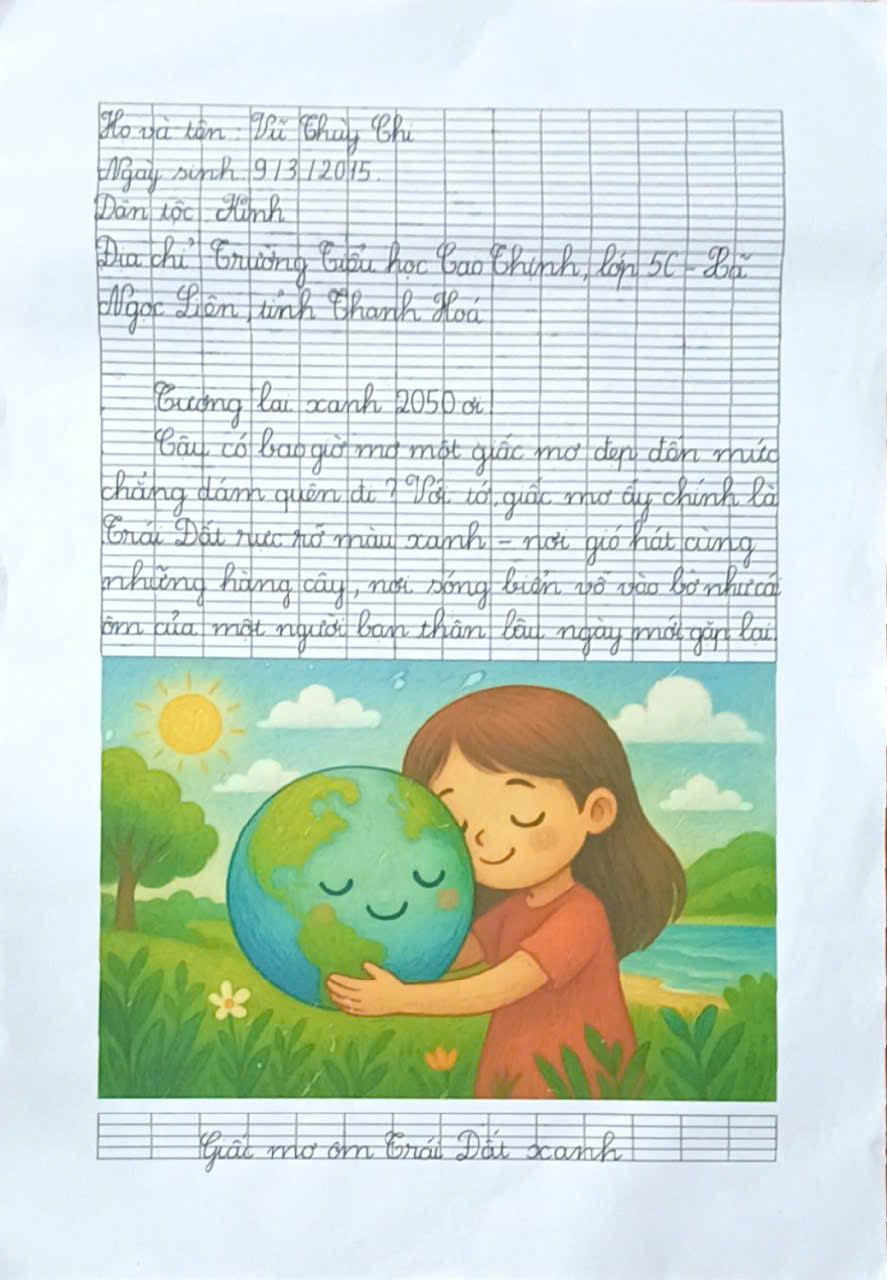 Họ và tên: Vũ Thùy Chi
Ngày sinh 9/3/2015.
Dân tộc Kinh
Địa chỉ Trường Tiểu học Cao Thịnh, lớp 5C - Xã
Ngọc Liên, tỉnh Thanh Hoá
Tương lai xanh 2050 ơi!
Cậu có bao giờ mơ một giấc mơ đẹp đến mức
chẳng dám quên đi? Với tớ, giấc mơ ấy chính là
Trái Đất rực rỡ màu xanh - nơi gió hát cùng
những hàng cây, nơi sóng biển vỗ vào bờ như cái
ôm của một người bạn thân lâu ngày mới gặp lại.
Giấc mơ ôm Trái Đất xanh